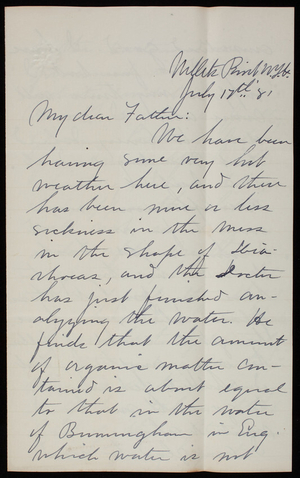 Willets Point N.Y.H.
July 17th 81
My dear Father:
We have been
having some very hot
weather here, and there
has been more or less
sickness in the mess
in the shape of diar-
rhoeas, and the Doctor
has just finished an-
alyzing the water. He
finds that the amount
of organic matter con-
tained is about equal
to that in the water
of Birmingham in Eng.
which water is not